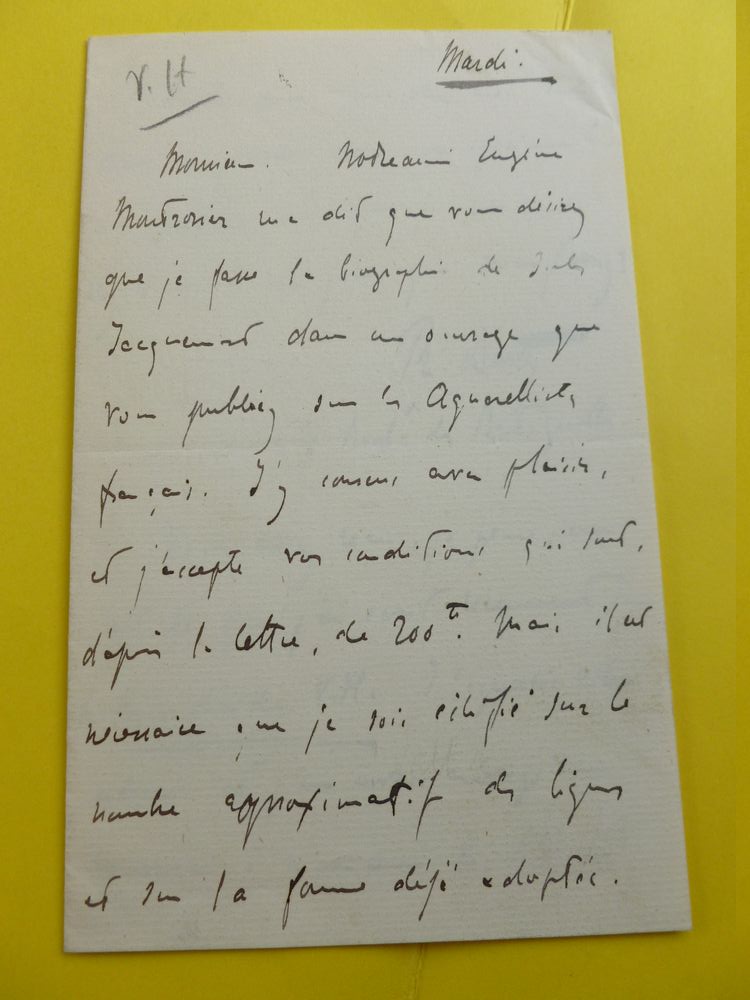 V. H
Mardi.
Monsieur. Notre ami Eugène
Montrosier m'a dit que vous désirez
que je fasse la biographie de Jules
Jacquemart dans un ouvrage que
vous publiez sur les Aquarellistes
français. J'y consens avec plaisir,
et j'accepte vos conditions qui sont,
d'après la lettre, de 200 fr. Mais il est
nécessaire que je sois édifié sur le
nombre approximatif des lignes
et sur la forme déjà adoptée.